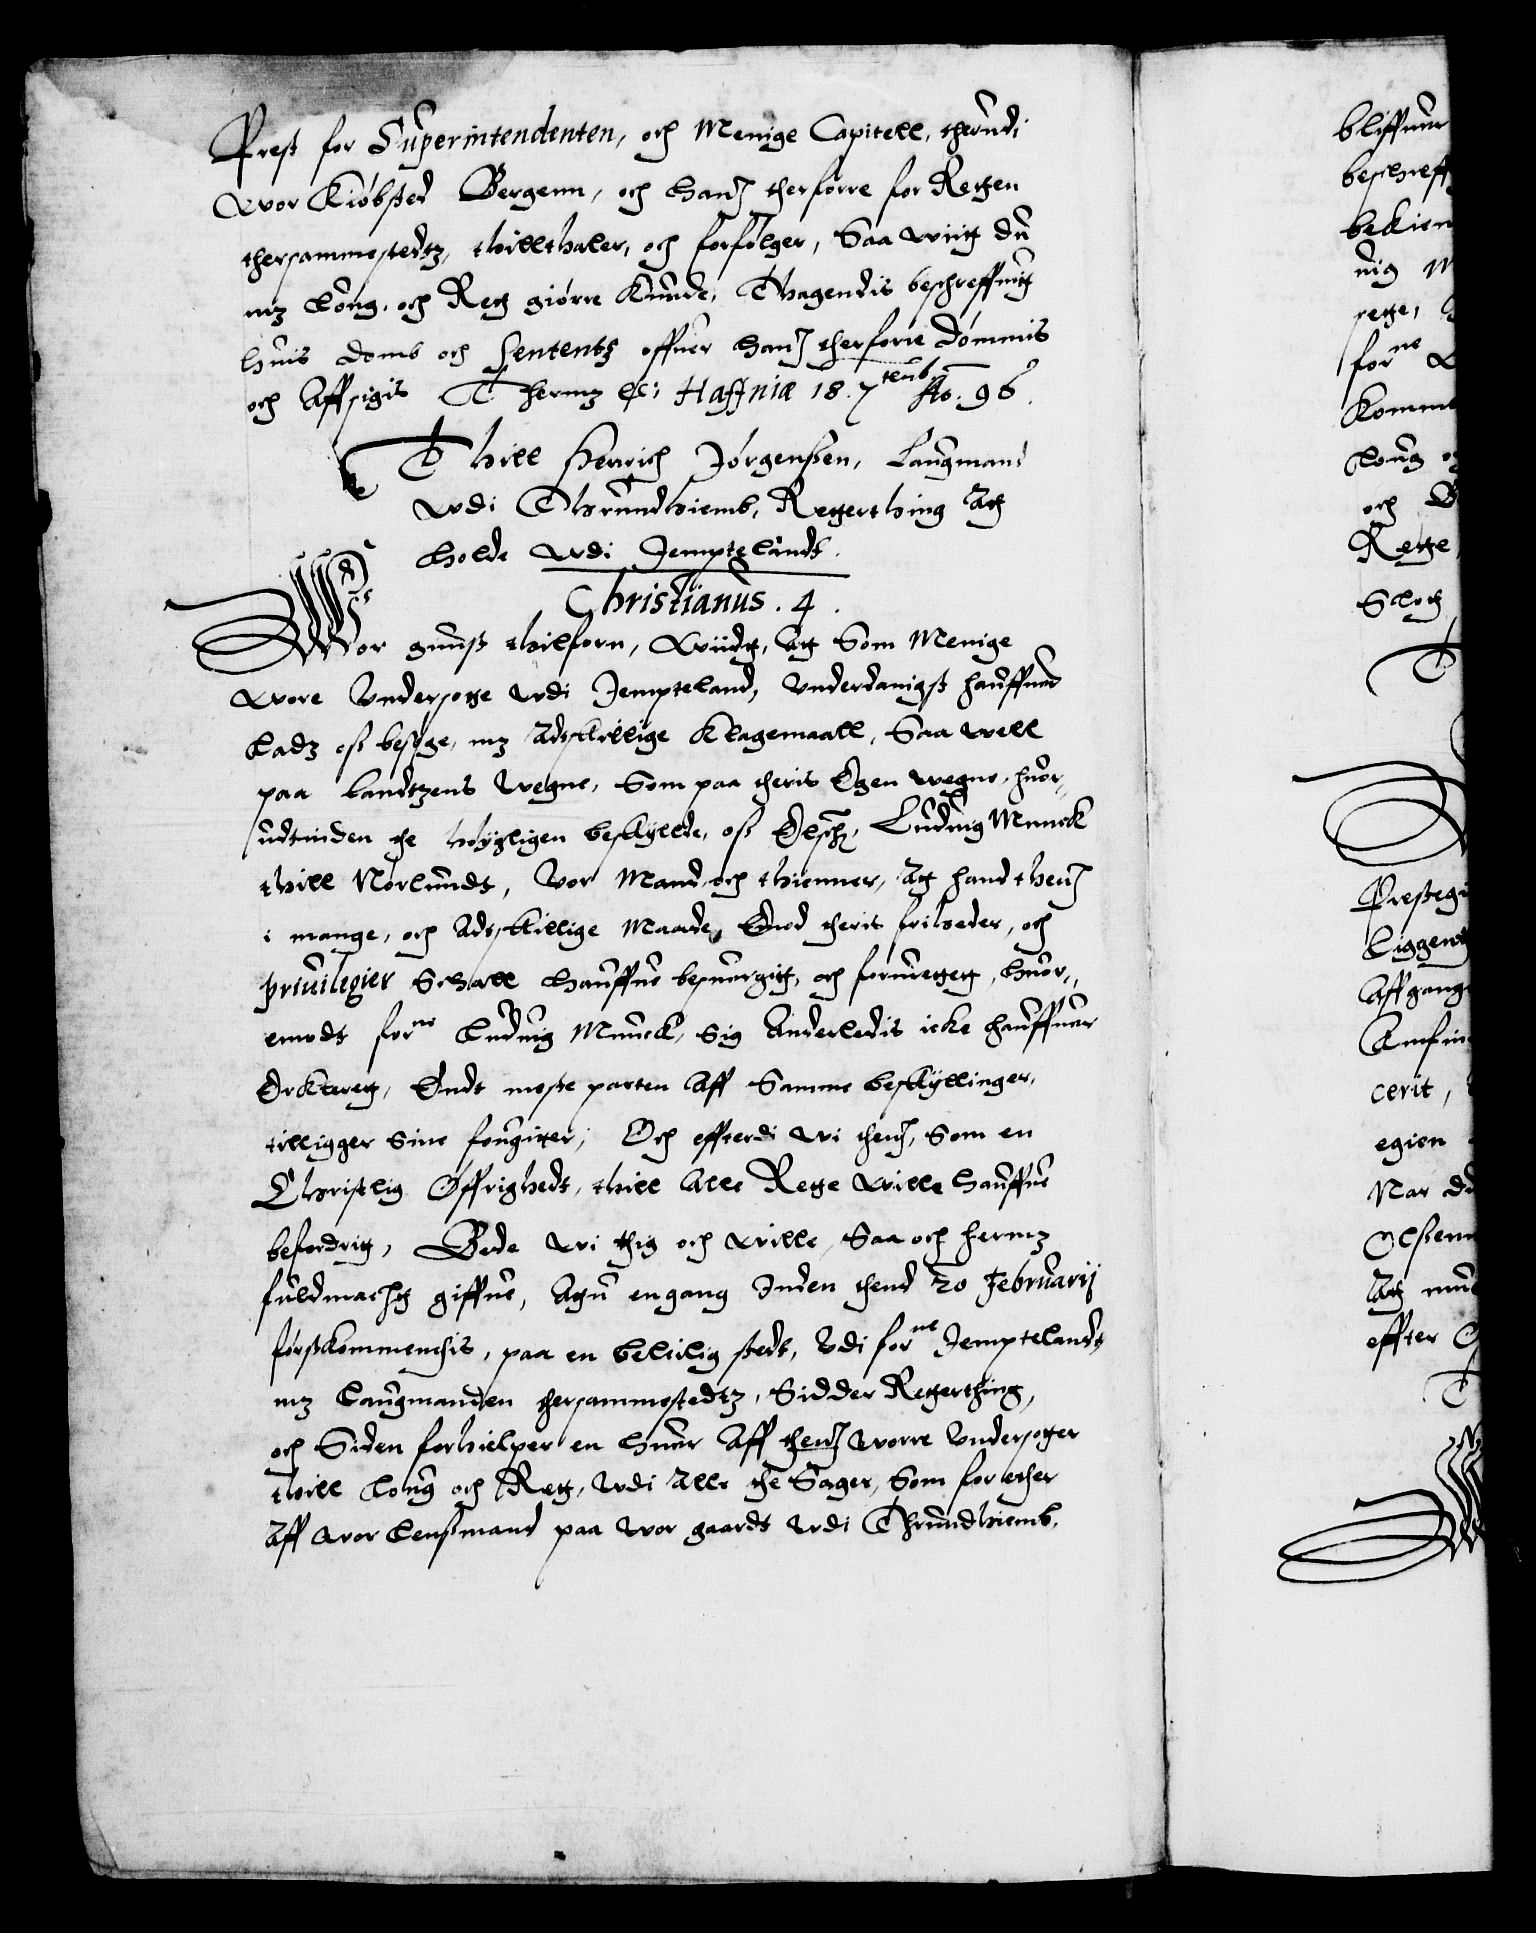 Prest for Superintendenten, och Menige Capitell, therudi
wor Kiøbsted Bergenn, och hanß therforre for Retten
thersammestedtz, thillthaler, och forfølger, Saa wiitt du
mz Loug, och Rett giørre Kunde, Thagendis beschreffuitt
huis domb och Sententz offuer hanß therforre dømmis
och Affsigis Thermz etc: Haffniæ 18. 7temb: Ao. 96.
Thill Henrich Jørgenßen, Laugmand
wdi Thrundhiemb, Retterthing Att
holde wdi Jempteland.
Christianus . 4 .
Wor gunst thilforn, Wiidt, Att Som Menige
wore Undersotte wdi Jempteland, Underdanigst haffuer
Ladz oß besøge, mz Adtskillige Klagemaall, Saa well
paa Landtzens Wegne, Som paa theris Egen wegne, huor-
udtinden the høyligen beskyllde, oß Elsche: Luduig Munck
thill Nørlundt, Vor Mand och thienner, Att hand thenß
i mange, och Adtskillige Maade, Emod theris friheder, och
privilegier Schall haffue besuergitt, och foruretteg, huor-
emodt forne Ludvig Munck, Sig Anderledis icke haffuer
Ercklerett, Endt meste parten Aff Samme beskyllinger,
tilligger Sine fougitter, Och effterdi wi thenß, Som en
Christelig Øffrighedt, thill Alle Rette wille haffue
befordrit, Bede wi thig och wille, Saa och hermz
fuldmacht giffue, Attu engang Inden thend 20 Februarij
førstkommendis, paa en beleilig stedt, Udi forne Jempteland,
mz Laugmanden thersammestedtz, Sidder Retterthing,
och Siden forhielper en huer Aff thenß worre Undersotter
thill Loug och Rett, wdi Alle the Sager, Som for ether
Aff wor Lenßmand paa wor gaardt wdi Thrundhiemb,
bliffuer
beschreff
bekien
nig M
sette,
forne
Komme
Loug
och
Rette
Slott,
Presteg
Liggend
Affgang
cerit,
egien
Nar
Olßenn
Att
effter